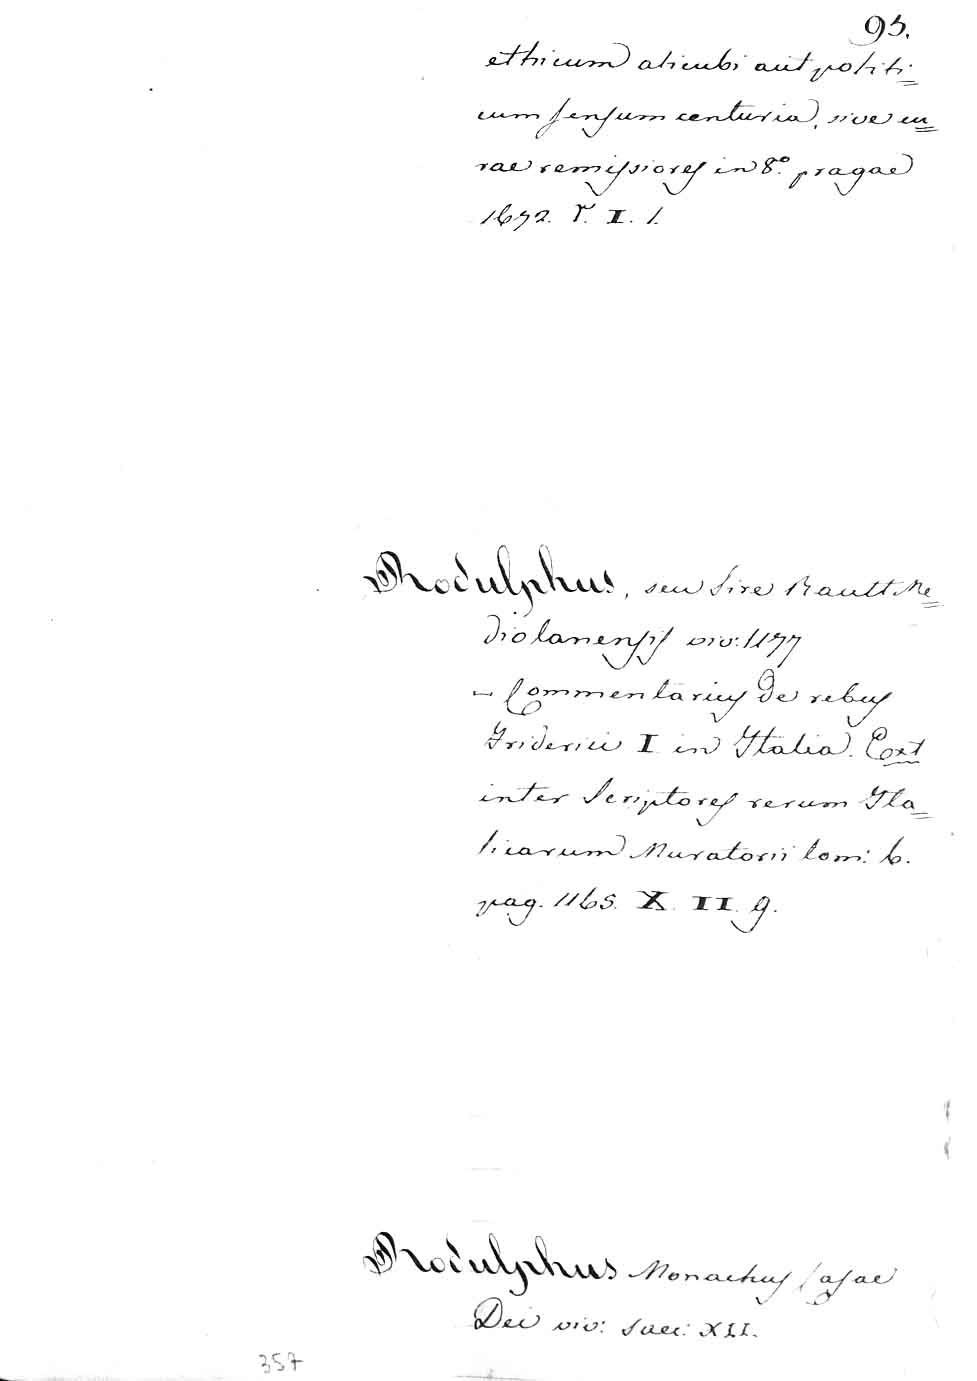 95.
ethicum alicubi aut politi=
cum sensum centuria, sive cu=
rae remissiores in 8.° pragae
1672. T. I. 1.
Rodulphus, seu Sire Rault Me=
diolanensis viv: 1177
– Commentarius de rebus
Friderici I in Italia. Ext
inter Scriptores rerum Ita=
licarum Muratorii tom: 6.
pag. 1165. X. II. g.
Rodulphus Monachus Casae
Dei viv: saec: XII.
357